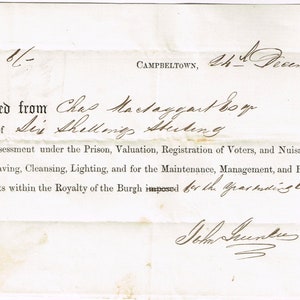 8/-
CAMPBELTOWN, 24th Decem
ed from Chas Mactaggart Esqr
Six Shillings Sterling
ssessment under the Prison, Valuation, Registration of Voters, and Nuisa
aving, Cleansing, Lighting, and for the Maintenance, Management, and
ts within the Royalty of the Burgh imposed for the year ending
John